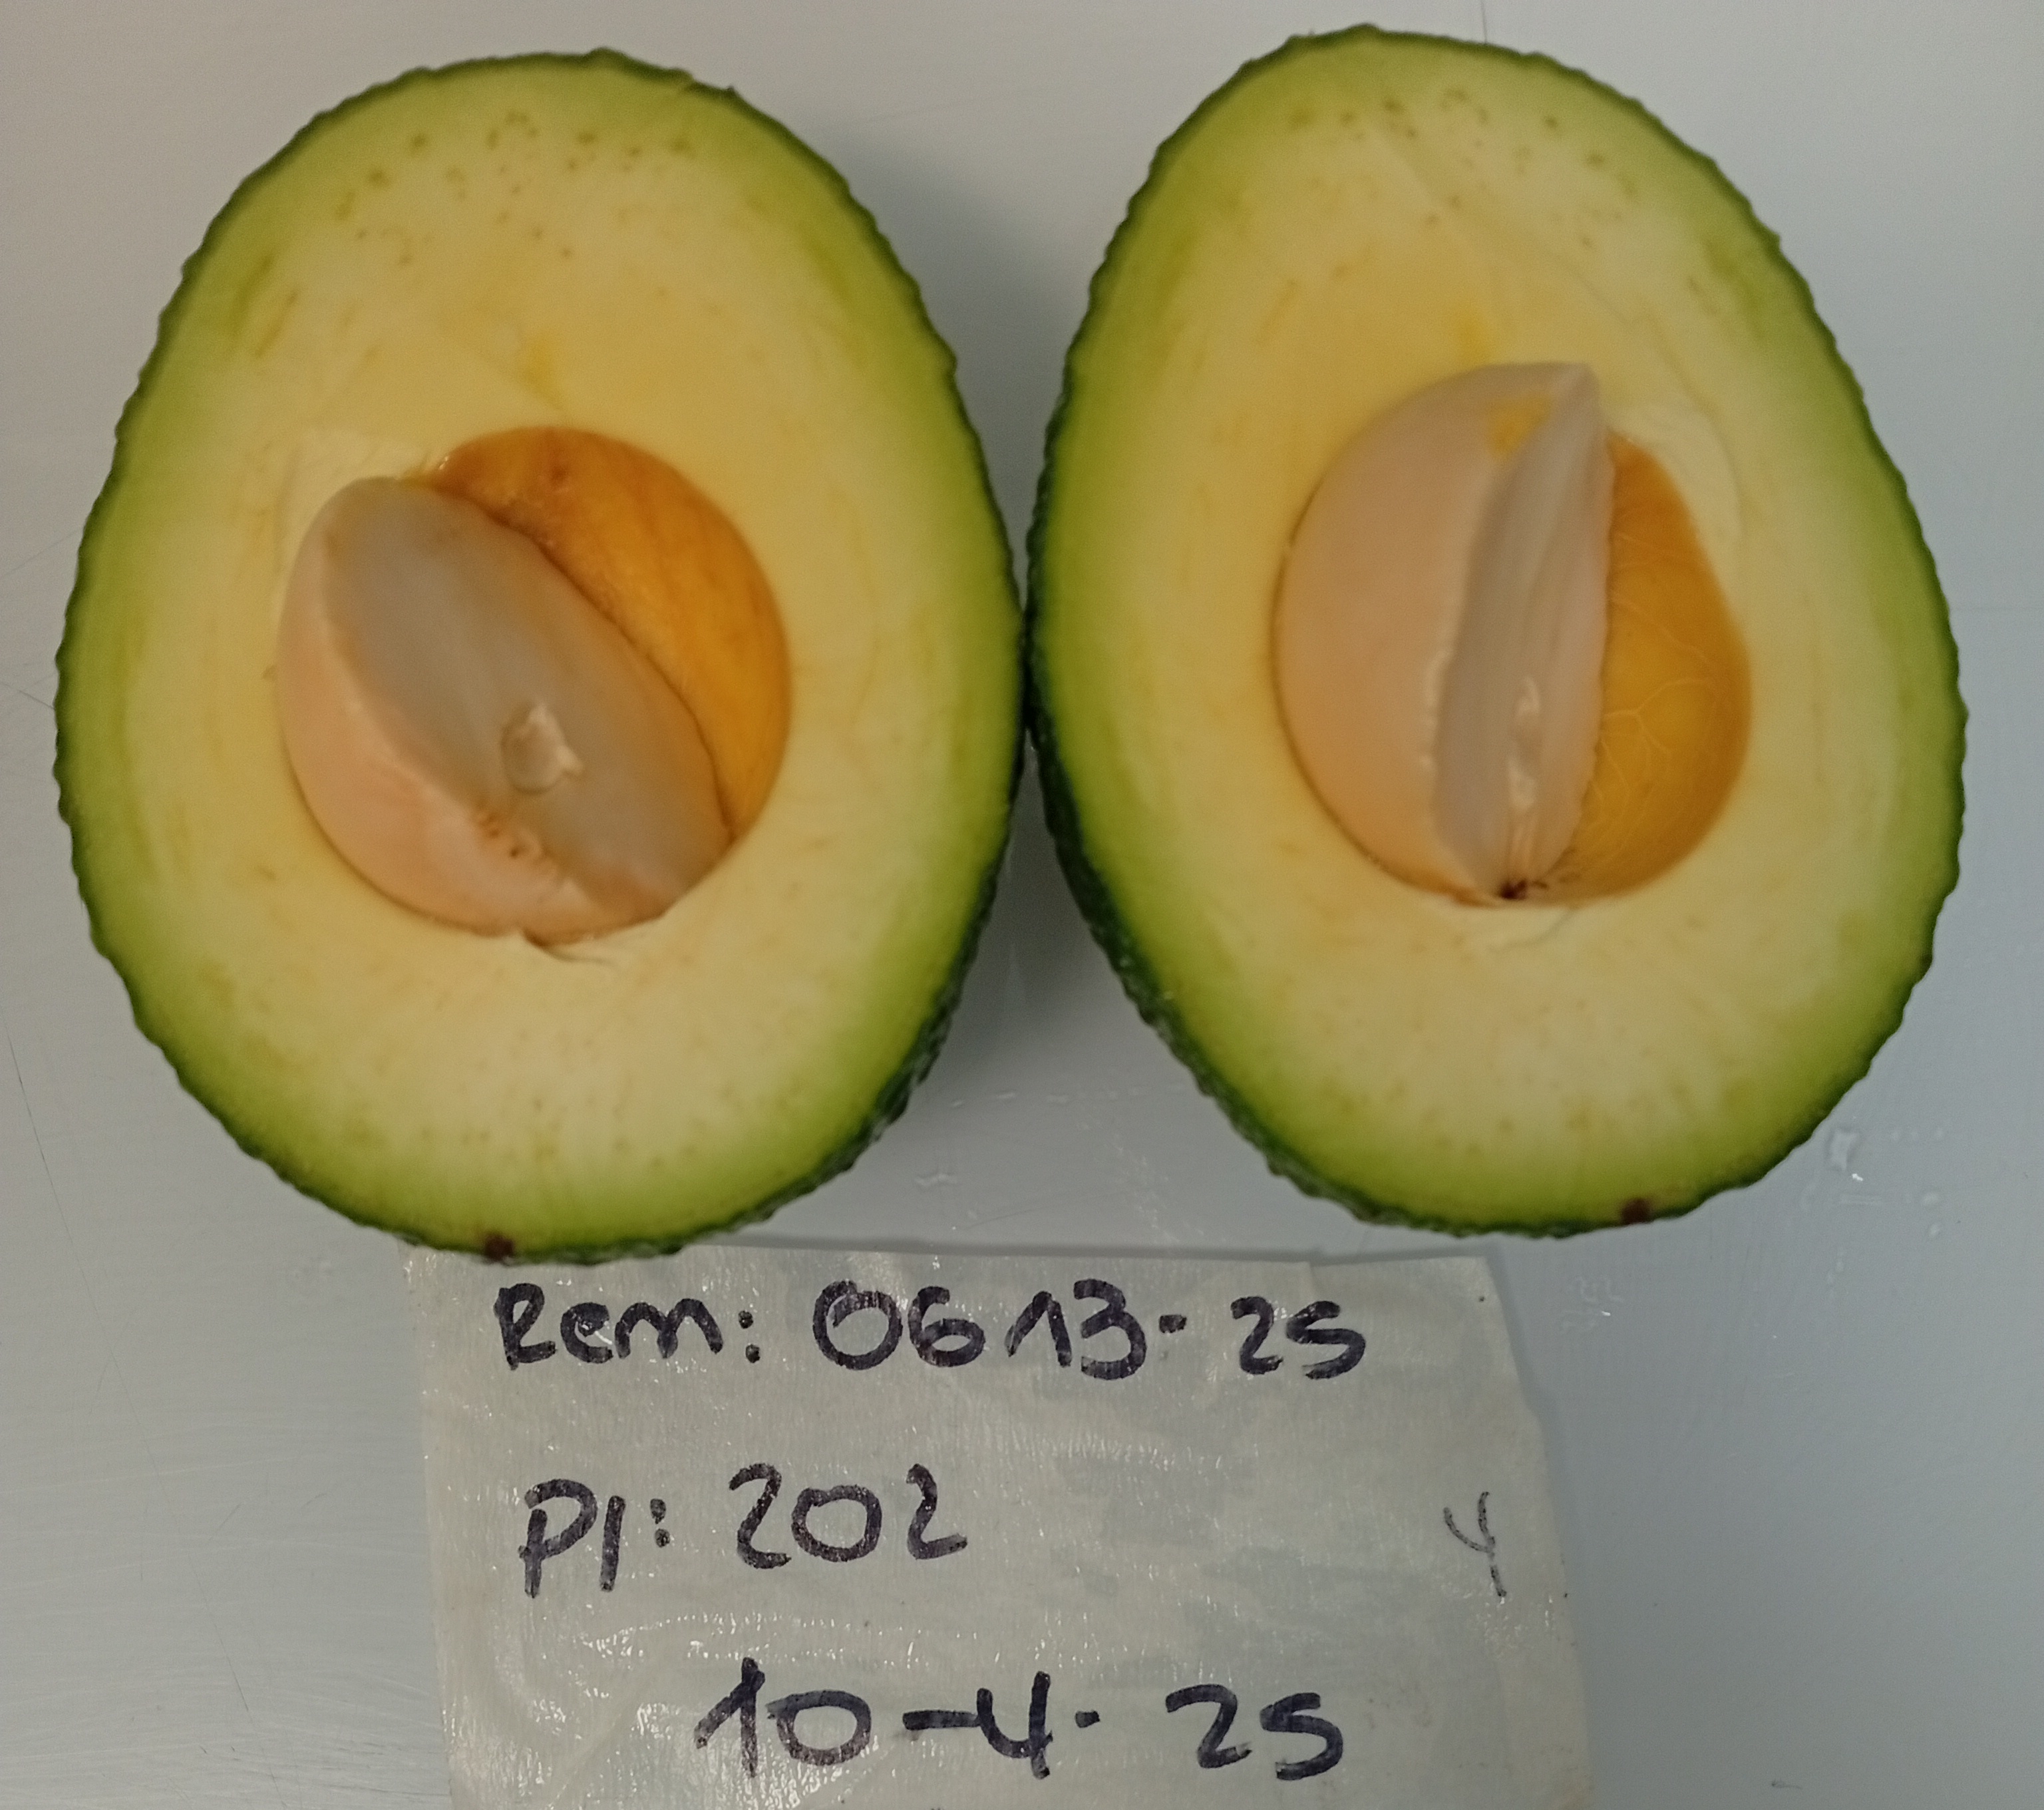 Rem: 0613-25
Pl: 202
4
10-4-25